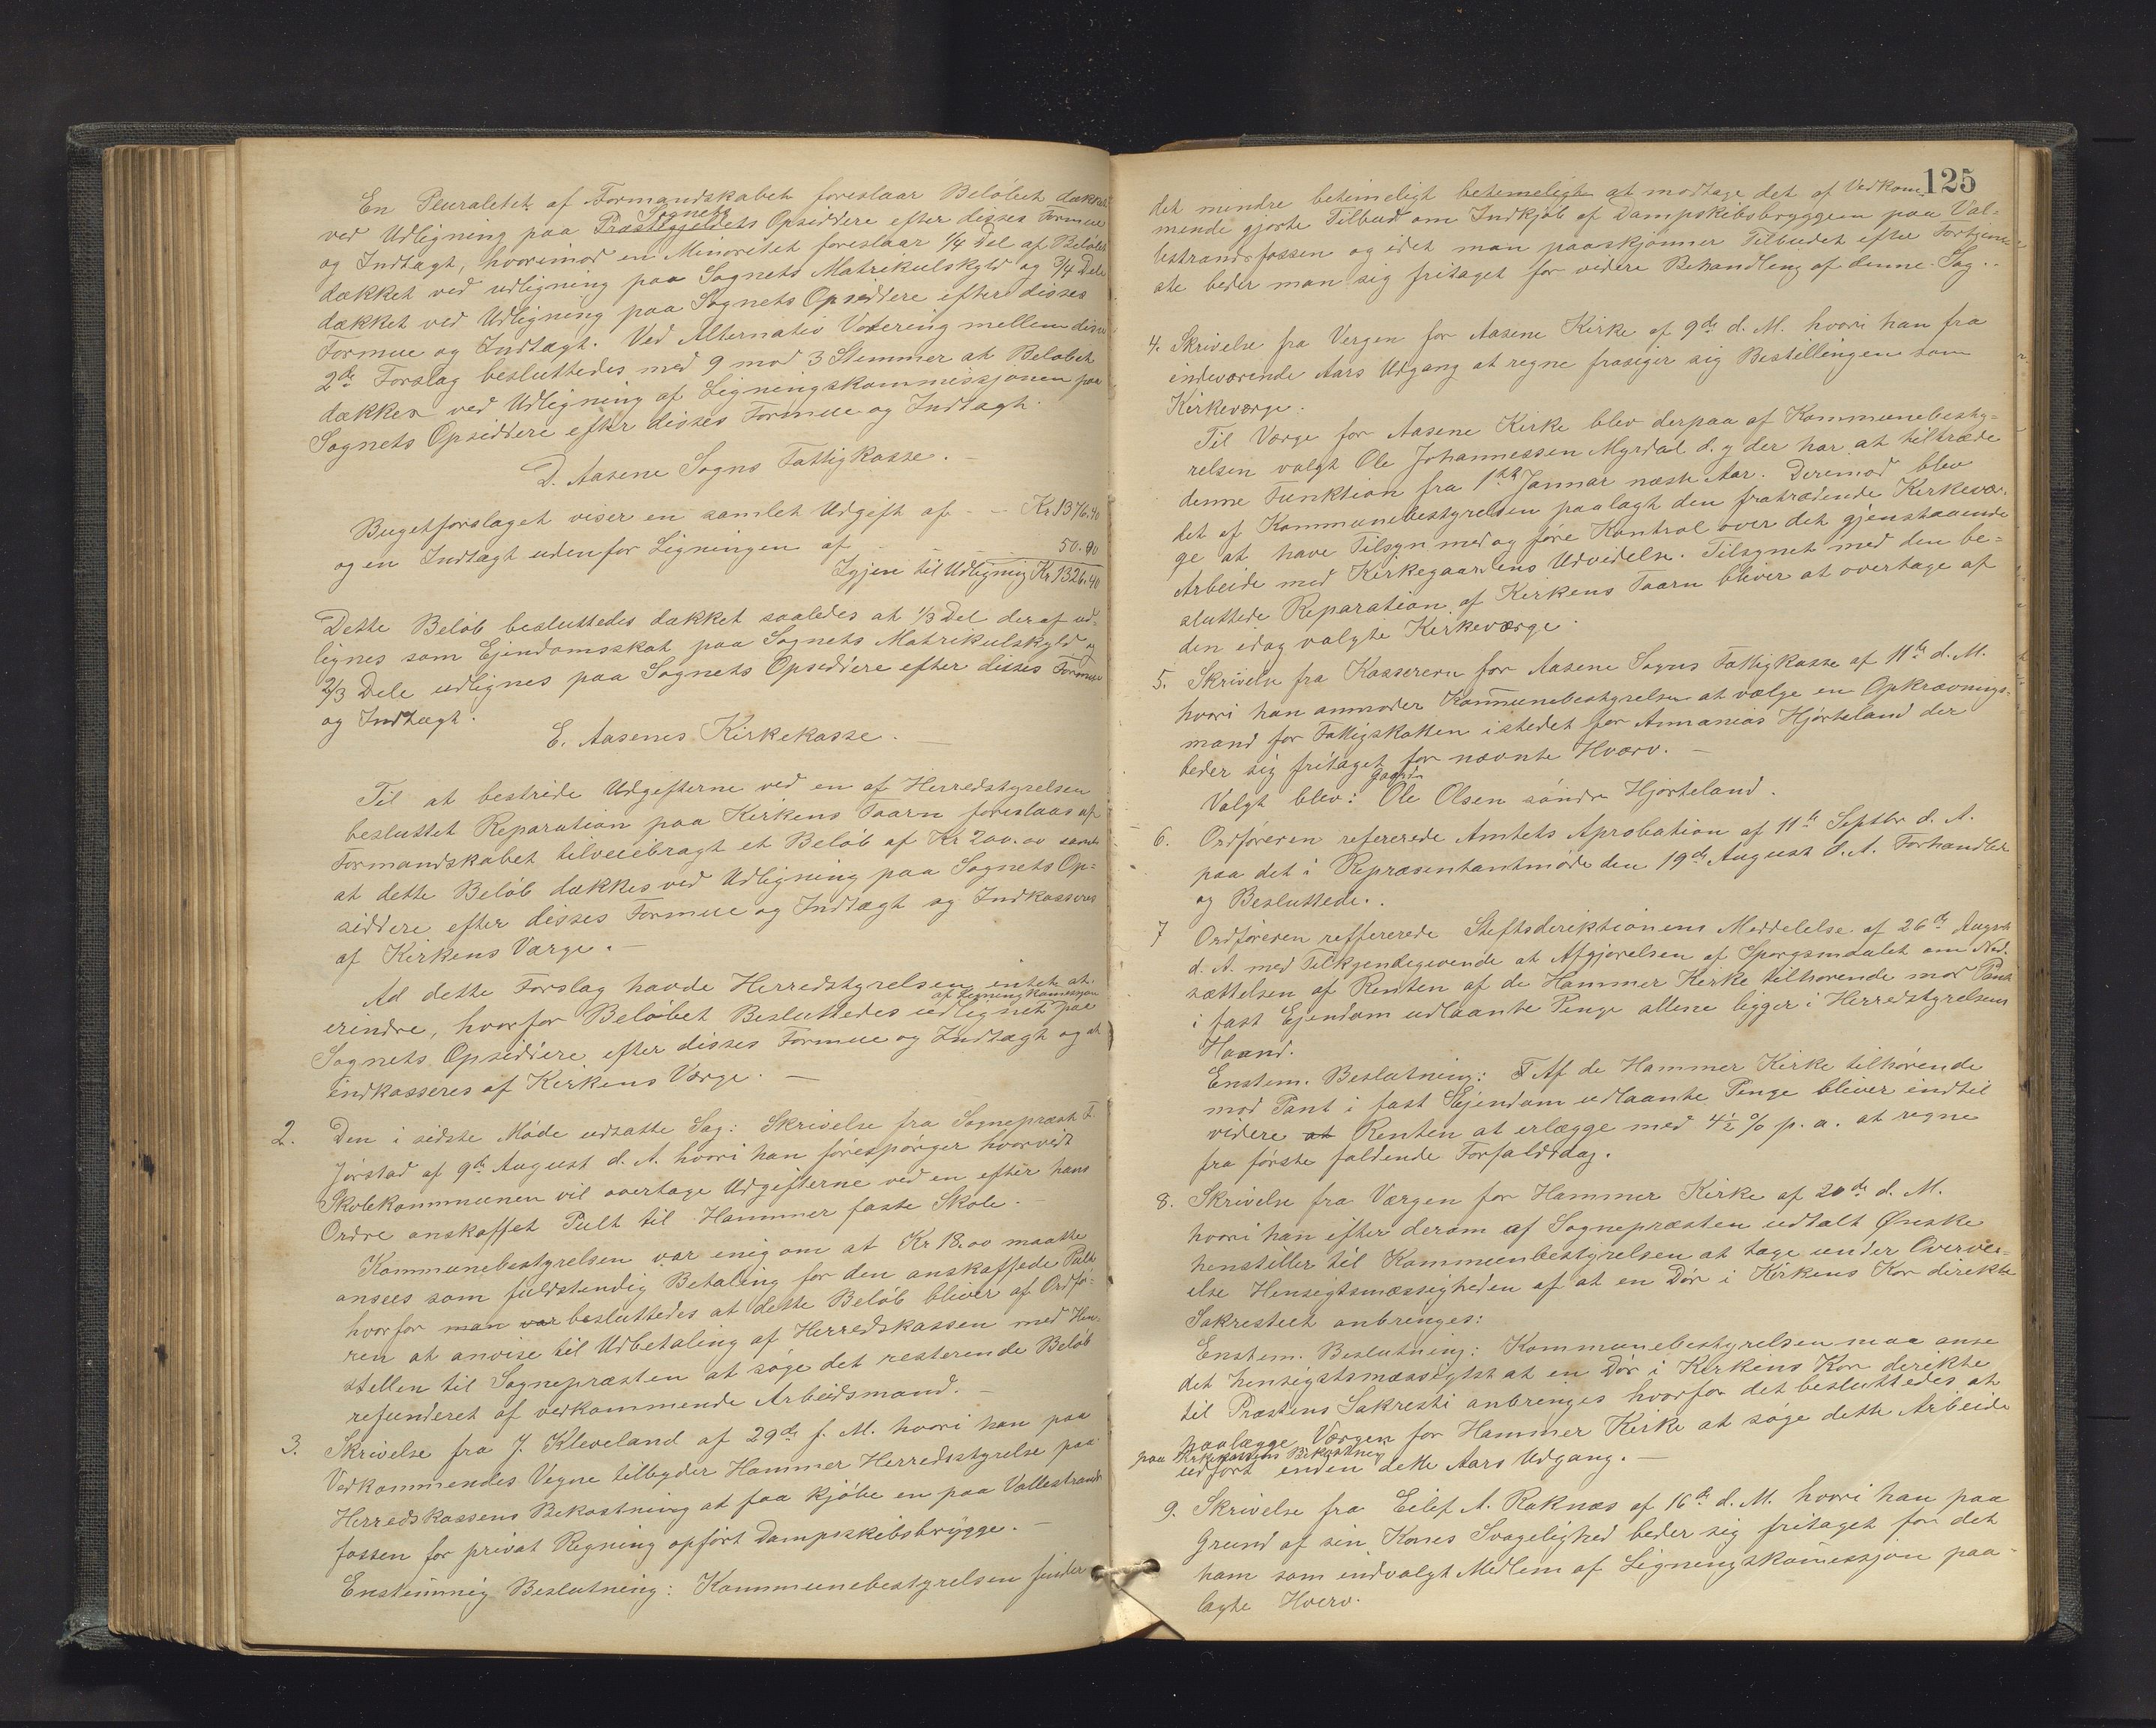 En Pluralitet af Formandskabet foreslaar Beløbet dækket
ved Udligning paa Sognets Præstegjeldets Opsiddere efter disses Formue
og Indtægt, hvorimod en Minoritet foreslaar 1/4 Del af Beløbet
dækket ved udligning paa Sognets Matrikulskyld og 3/4 Dele
dækket ved Udligning paa Sognets Opsiddere efter disses
Formue og Indtægt. Ved Alternativ Votering mellem disse
2de Forslag besluttedes med 9 mod 3 Stemmer at Beløbet
dækkes ved Udligning af Ligningskommissjonen paa
Sognets Opsiddere efter disses Formue og Indtægt.
D. Aasene Sogns Fattigkasse.
Bugetforslaget viser en samlet Udgift af - - Kr 1376.40
og en Indtægt udenfor Ligningen af - - - 50.00
Igjen til Udligning Kr. 1326.40
Dette Beløb besluttedes dækket saaledes at 1/3 Del deraf ud-
lignes som Ejendomsskat paa Sognets Matrikulskyld og
2/3 Dele udlignes paa Sognets Opsiddere efter disses Formue
og Indtægt.
E. Aasenes Kirkekasse.
Til at bestride Udgifterne ved en af Herredstyrelsen
besluttet Reparation paa Kirkens Taarn foreslaas af
Formandskabet tilveiebragt et Beløb af Kr 200.00 samt
at dette Beløb dækkes ved Udligning paa Sognets Op=
siddere efter disses Formue og Indtægt og Indkasseres
af Kirkens Værge. -
Ad dette Forslag havde Herredstyrelsen intet at
erindre, hvorfor Beløbet Besluttedes udlignet af Ligningskomissjon paa
Sognets Opsiddere efter disses Formue og Indtægt og at
indkasseres af Kirkens Værge. -
2. Den i sidste Møde udsatte Sag: Skrivelse fra Sognepræst F.
Jørstad af 9de August d. A. hvori han forespørger hvorvidt
Skolekommunen vil overtage Udgifterne ved en efter hans
Ordre anskaffet Pult til Hammer faste Skole.
Kommunebestyrelsen var enig om at Kr 18.00 maatte
ansees som fuldstendig Betaling for den anskaffede Pult
hvorfor man var besluttedes at dette Beløb bliver af Ordfø-
ren at anvise til Udbetaling af Herredskassen med Hen-
stillen til Sognepræsten at søge det resterende Beløb
refunderet af vedkommende Arbeidsmand. -
3. Skrivelse fra J. Kleveland af 29de f. M. hvori han paa
Vedkommendes Vegne tilbyder Hammer Herredsstyrelse paa
Herredskassens Bekostning at faa kjøbe en paa Vallestrands
fossen for privat Regning opført Dampskibsbrygge. -
Enstemmig Beslutning: Kommunebestyrelsen finder
125
det mindre beteimeligt betemeligte at modtage det af Vedkom-
mende gjorte Tilbud om Indkjøb af Dampskibsbryggen paa Val-
lestrandsfossen og idet man paaskjønner Tilbudet efter Fortjene-
ste beder man sig fritaget for videre Behandling af denne Sag. -
4. Skrivelse fra Vergen for Aasene Kirke af 9de d. M. hvori han fra
indeværende Aars Udgang at regne frasiger sig Bestillingen som
Kirkeværge.
Til Værge for Aasene Kirke blev derpaa af Kommunebesty=
relsen valgt Ole Johannessen Myrdal d. y der har at tiltræde
denne Funktion fra 1ste Januar næste Aar. Derimod blev
det af Kommunebestyrelsen paalagt den fratrædende Kirkevær-
ge at have Tilsyn med og føre Kontrol over det gjenstaaende
Arbeide med Kirkegaardens Udvidelse. Tilsynet med den be-
sluttede Reparation af Kirkens Taarn bliver at overtage af
den idag valgte Kirkeværge.
5. Skrivelse fra Kassereren for Aasene Sogns Fattigkasse af 11te d. M.
hvori han anmoder Kommunebestyrelsen at vælge en Opkrævnings-
mand for Fattigskatten istedet for Annanias Hjørteland der
beder sig fritaget for nævnte Hværv. -
Valgt blev: Gaard. Ole Olsen søndre Hjorteland.
6. Ordføreren refererede Amtets Aprobation af 11te Septbr d. A.
paa det i Repræsentantmøde den 19de August d. A. Forhandlede
og Besluttede..
7 Ordføreren reffererede Stiftsdirektionens Meddelelse af 26de August
d. A. med Tilkjendegivende at Afgjørelsen af Spørgsmaalet om Ned-
sættelsen af Renten af de Hammer Kirke tilhørende mod Pant
i fast Ejendom udlaante Penge allene ligger i Herredstyrelsens
Haand.
Enstem. Beslutning: Af de Hammer Kirke tilhørende
mod Pant i fast Ejendom udlaante Penge bliver indtil
videre at Renten at erlægge med 4½ % p. a. at regne
fra første faldende Forfaldsdag.
8. Skrivelse fra Værgen for Hammer Kirke af 20de d. M.
hvori han efter derom af Sognepræsten udtalt Ønske
henstiller til Kommunbestyrelsen at tage under Overvei-
else Hensigtsmæssigheden af at en Dør i Kirkens Kor direkte
Sakrestiet anbringes:
Enstem. Beslutning: Kommunebestyrelsen maa anse
det hensigtsmæssigtst at en Dør i Kirkens Kor direkte
til Præstens Sakresti anbringes hvorfor det besluttedes at
paalægge Værgen for Hammer Kirke at søge dette Arbeide
paa Kirkekassens Bekostning
udført enden dette Aars Udgang. -
9. Skrivelse fra Eilef A. Raknæs af 16de d. M. hvori han paa
Grund af sin Kones Svagelighed beder sig fritaget for det
ham som indvalgt Medlem af Ligningskomissjon paa-
lagte Hverv.